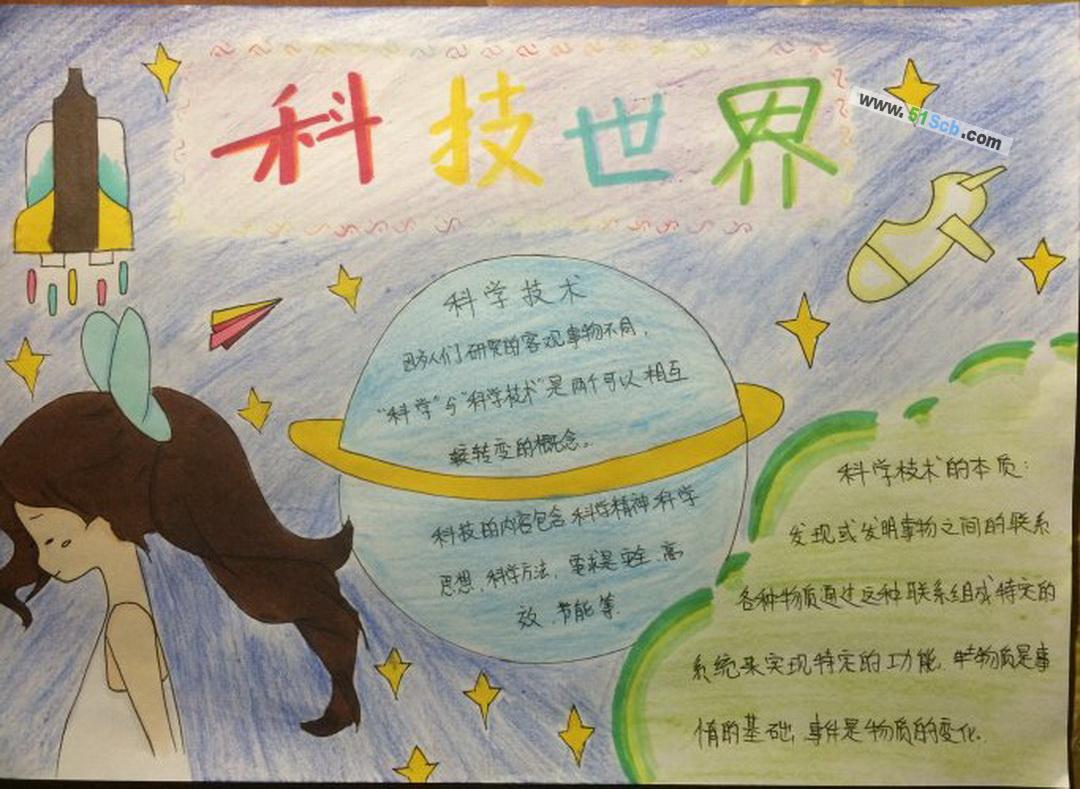 科技世界
www.51Scb.com
科学技术
因为人们研究的客观事物不同,
"科学"与"科学技术"是两个可以相互
转变的概念。
科技的内容包含 科学精神 科学
思想、科学方法, 要求是安全、高
效、节能等.
科学技术的本质:
发现或发明事物之间的联系
各种物质通过这种联系组成特定的
系统来实现特定的功能, 物质是事
情的基础, 事件是物质的变化.